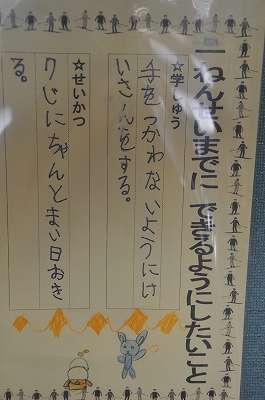 一ねんせいまでに できるようにしたいこと
☆学しゅう
手をつかわないようにけ
いさんをする。
☆せいかつ
7じにちゃんとまい日おき
る。